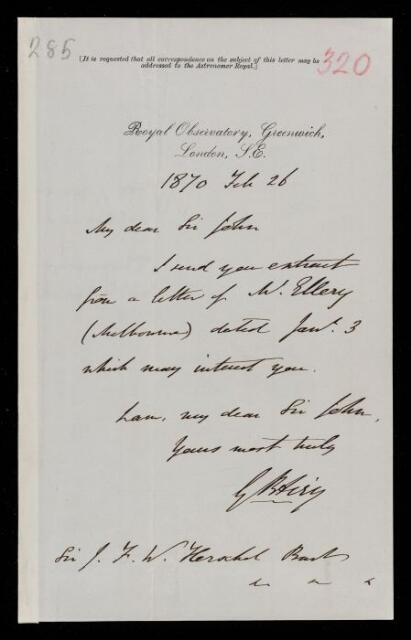 285
[It is requested that all correspondence on the subject of this letter may be
addressed to the Astronomer Royal.]
320
Royal Observatory, Greenwich,
London, S.E.
1870 Feb 26
My dear Sir John
I send you extract
from a letter of Mr. Ellery
(Melbourne) dated Jany. 3
which may interest you.
I am, my dear Sir John,
Yours most truly
G B Airy
Sir J. F. W. Herschel Bart